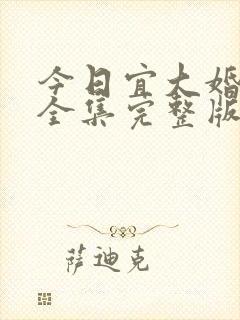 今日宜大婚
全集完整版
萨迪克